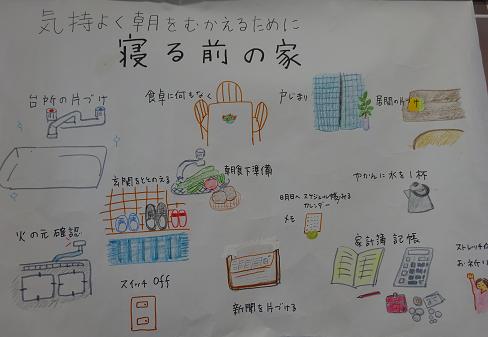 気持よく朝をむかえるために
寝る前の家
台所の片づけ
食卓に何もなく
戸じまり
居間の片づけ
玄関をととのえる
朝食下準備
明日へ スケジュール帳みる
カレンダー
メモ
やかんに水を1杯
火の元確認
スイッチ Off
新聞を片づける
家計簿記帳
ストレッチ
お祈り